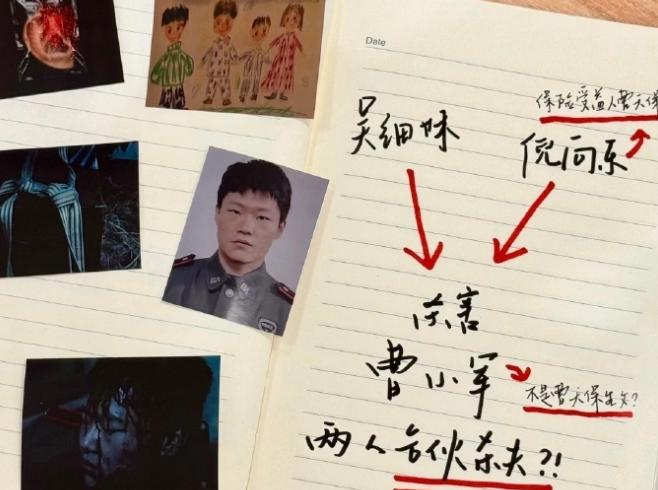 Date
保险受益人曹天保
吴细妹
倪向东
共害
曹小军
不是曹天保生父?
两人合伙杀夫?!